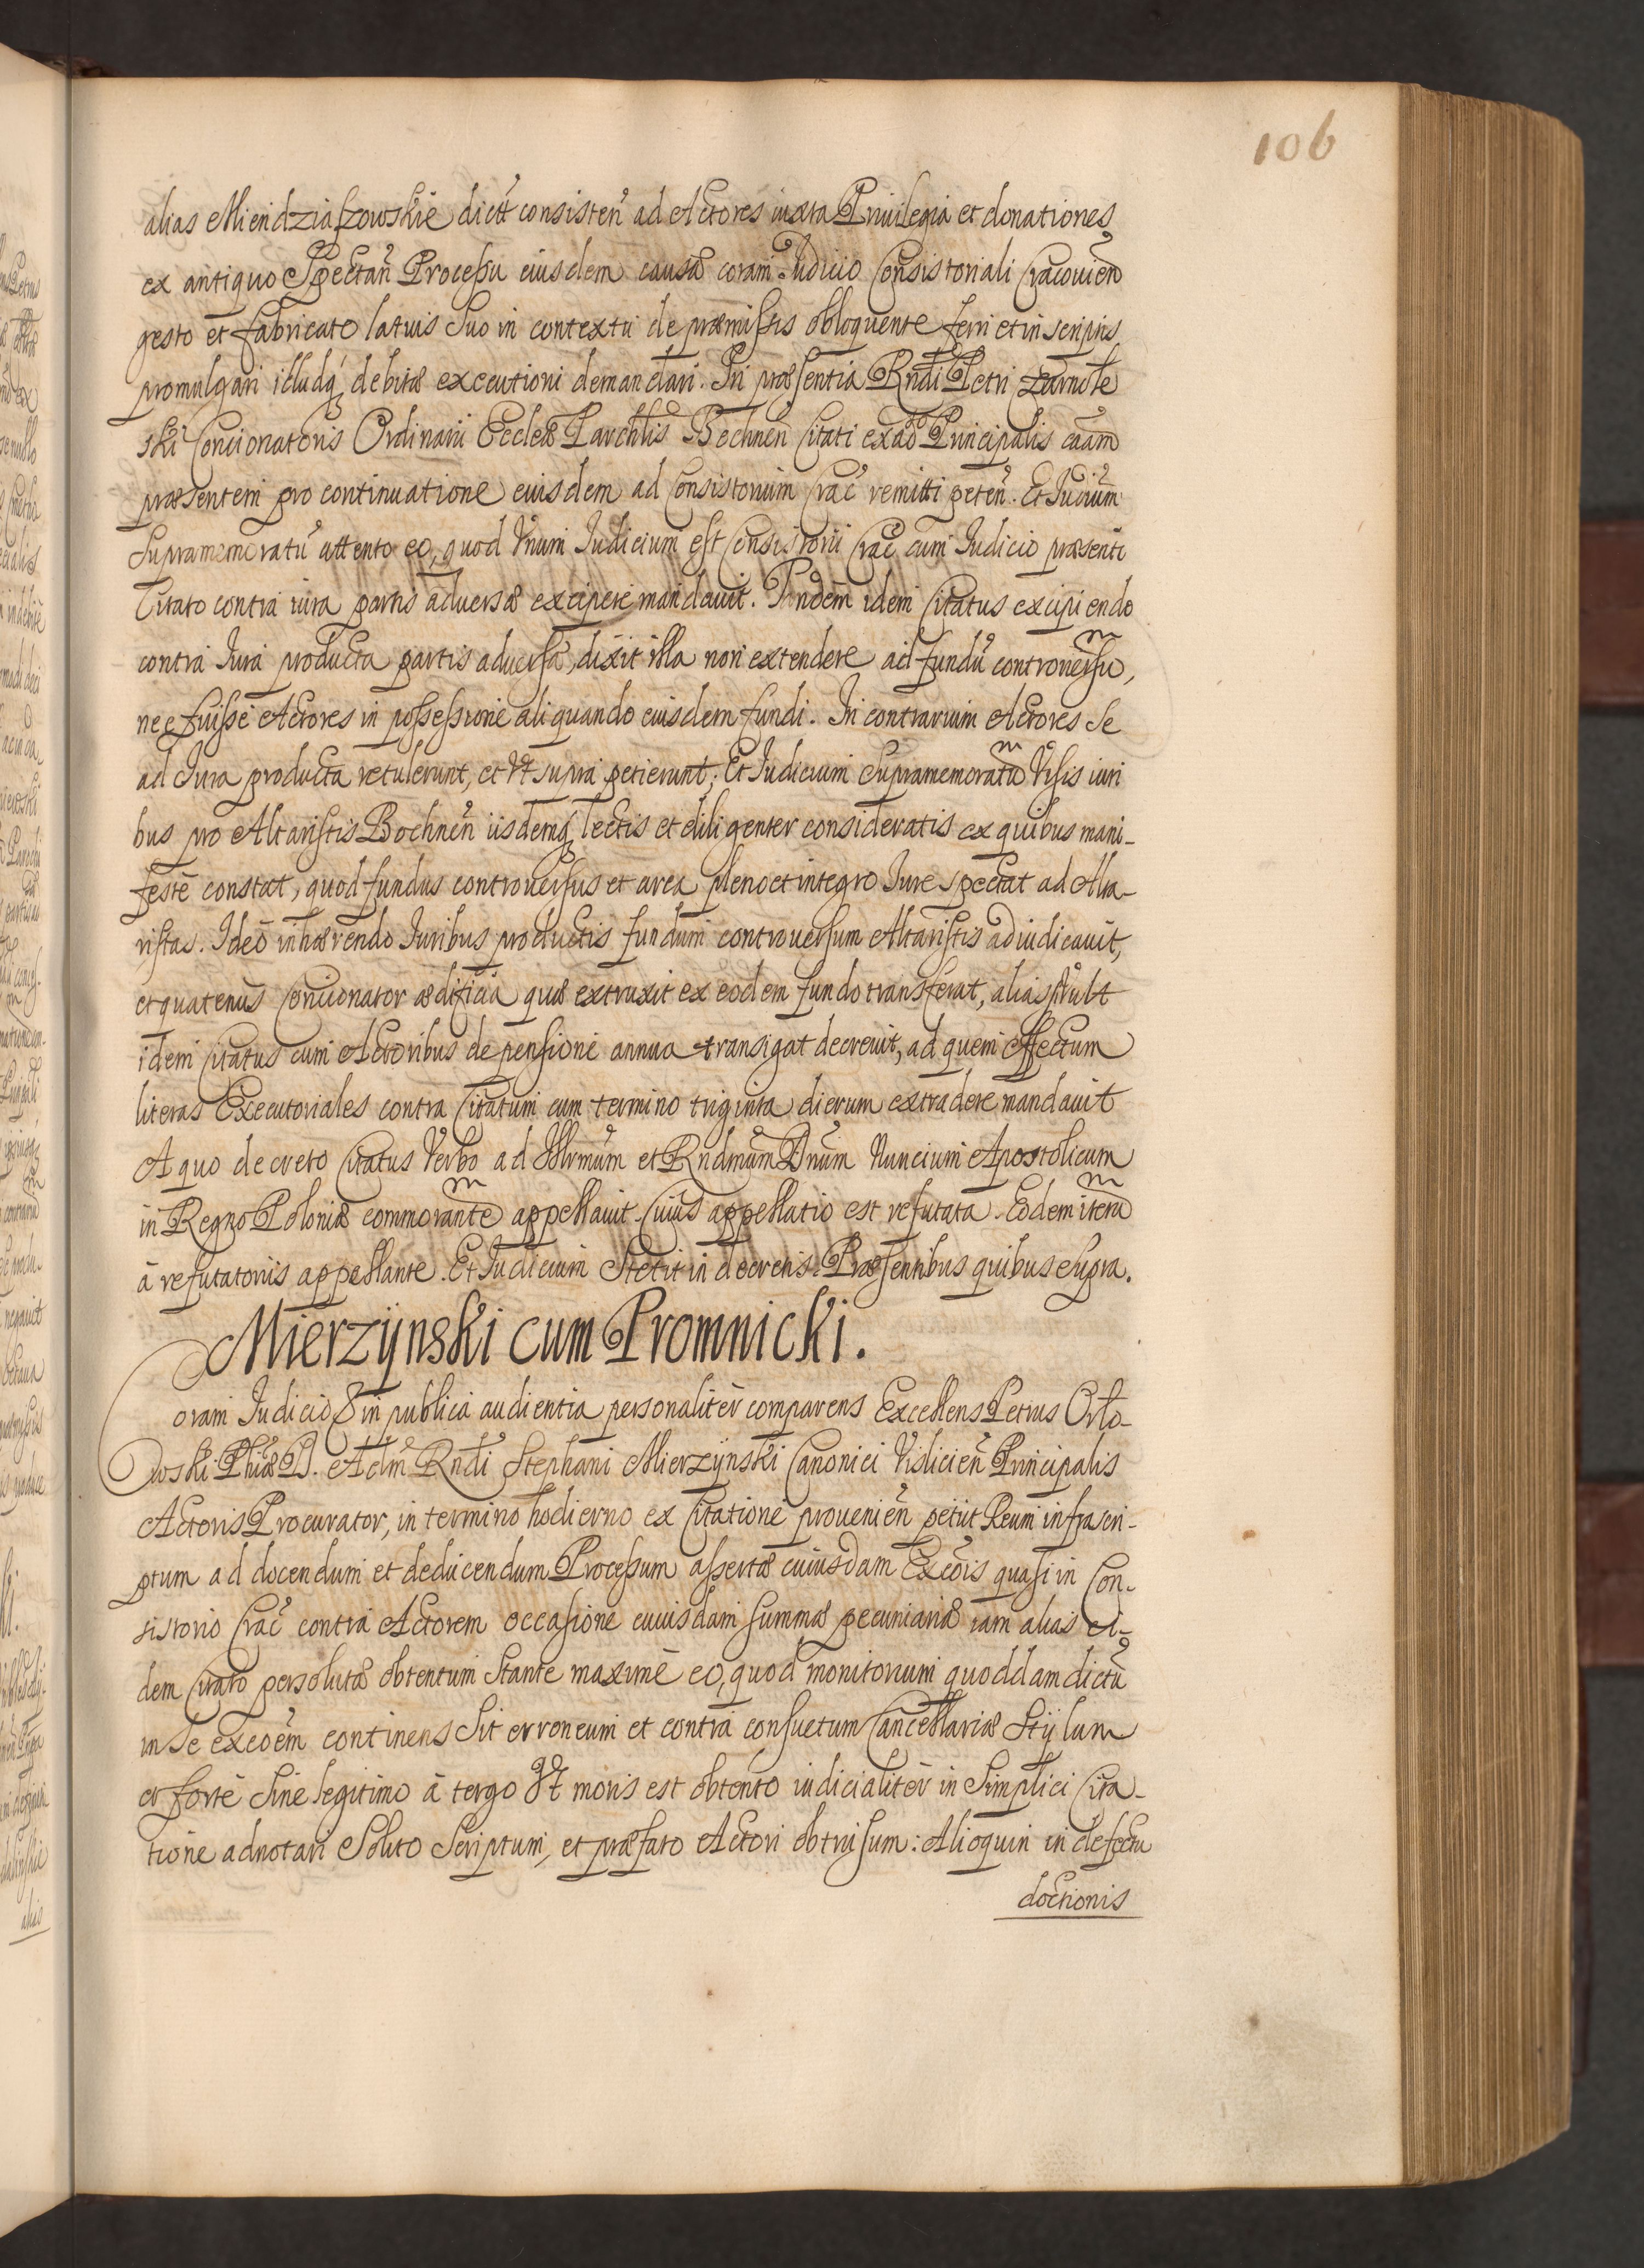 106
alias Miendziaszowskie dictũ consisteñ ad Actores iuxta Priuilegia et donationes
ex antiquo Spectañ Processu eiusdem causæ coram Iudicio Consistoriali Cracouieñ
gesto et fabricato latius suo in contextu de præmissis obloquente ferri et in scriptis
promulgari illudq; debitæ executioni demandari. In præsentia Rndi Petri Zarnote
ski Concionatoris Ordinarii Eccleæ Parchlis Bochneñ Citati ex ad͂o Principalis cãam
præsentem pro continuatione eiusdem ad Consistorium Crac̃ remitti peteñ. Et Iudiũm
Supramemoratũ attento eo, quod Vnum Iudicium est Consistorii Crac̃ cum Iudicio præsenti
Citato contra iura partis aduersæ excipere mandauit. Tandem idem Citatus excipiendo
contra Iura producta partis aduersæ, dixit illa non extendere ad fundũ controuersũ,
nec fuisse Actores in possessione aliquando eiusdem fundi. In contrarium Actores se
ad Iura producta retulerunt, et Vt supra petierunt; Et Iudicium Supramemoratũ Visis iuri
bus pro Altaristis Bochneñ iisdemq; lectis et diligenter consideratis ex quibus mani-
festè constat, quod fundus controuersus et area pleno et integro Iure spectat ad Alta-
ristas. Ideò inhærendo Iuribus productis fundum controuersum Altaristis adiudicauit,
et quatenus Concionator ædificia quæ extruxit ex eodem fundo transferat, alias si Vult
idem Citatus cum Actoribus de pensione annua transigat decreuit, ad quem effectum
literas Executoriales contra Citatum cum termino triginta dierum extradere mandauit
A quo decreto Citatus Verbo ad Illrmũm et Rndmũm Dñum Nuncium Apostolicum
in Regno Poloniæ commorantẽ appellauit. Cuius appellatio est refutata. Eodem iterũ
à refutatoriis appellante. Et Iudicium Stetit in decretis. Præsentibus quibus supra.
Mierzÿnski cum Promnicki.
Coram Iudicio & in publica audientia personalitèr comparens Excellens Petrus Orło-
wski Phiæ D. Adm̃ Rndi Stephani Mierzÿnski Canonici Vislicieñ Principalis
Actoris Procurator, in termino hodierno ex Citatione prouenieñ petiit Reum infrascri-
ptum ad docendum et deducendum Processum assertæ cuiusdam Excõis quasi in Con-
sistorio Crac̃ contra Actorem occasione cuiusdam summæ pecuniariæ iam alias ei-
dem Citato persolutæ obtentum Stante maximè eo, quod monitorium quoddam dictũ
in se excõem continens Sit erroneum et contra consuetum Cancellariæ Stÿlum
et fortè Sine legitimo à tergo Vt moris est obtento iudicialitèr in Simplici Cita-
tione adnotari Solito Scriptum, et præfato Actori obtrusum: Alioquin in defectu
doctionis